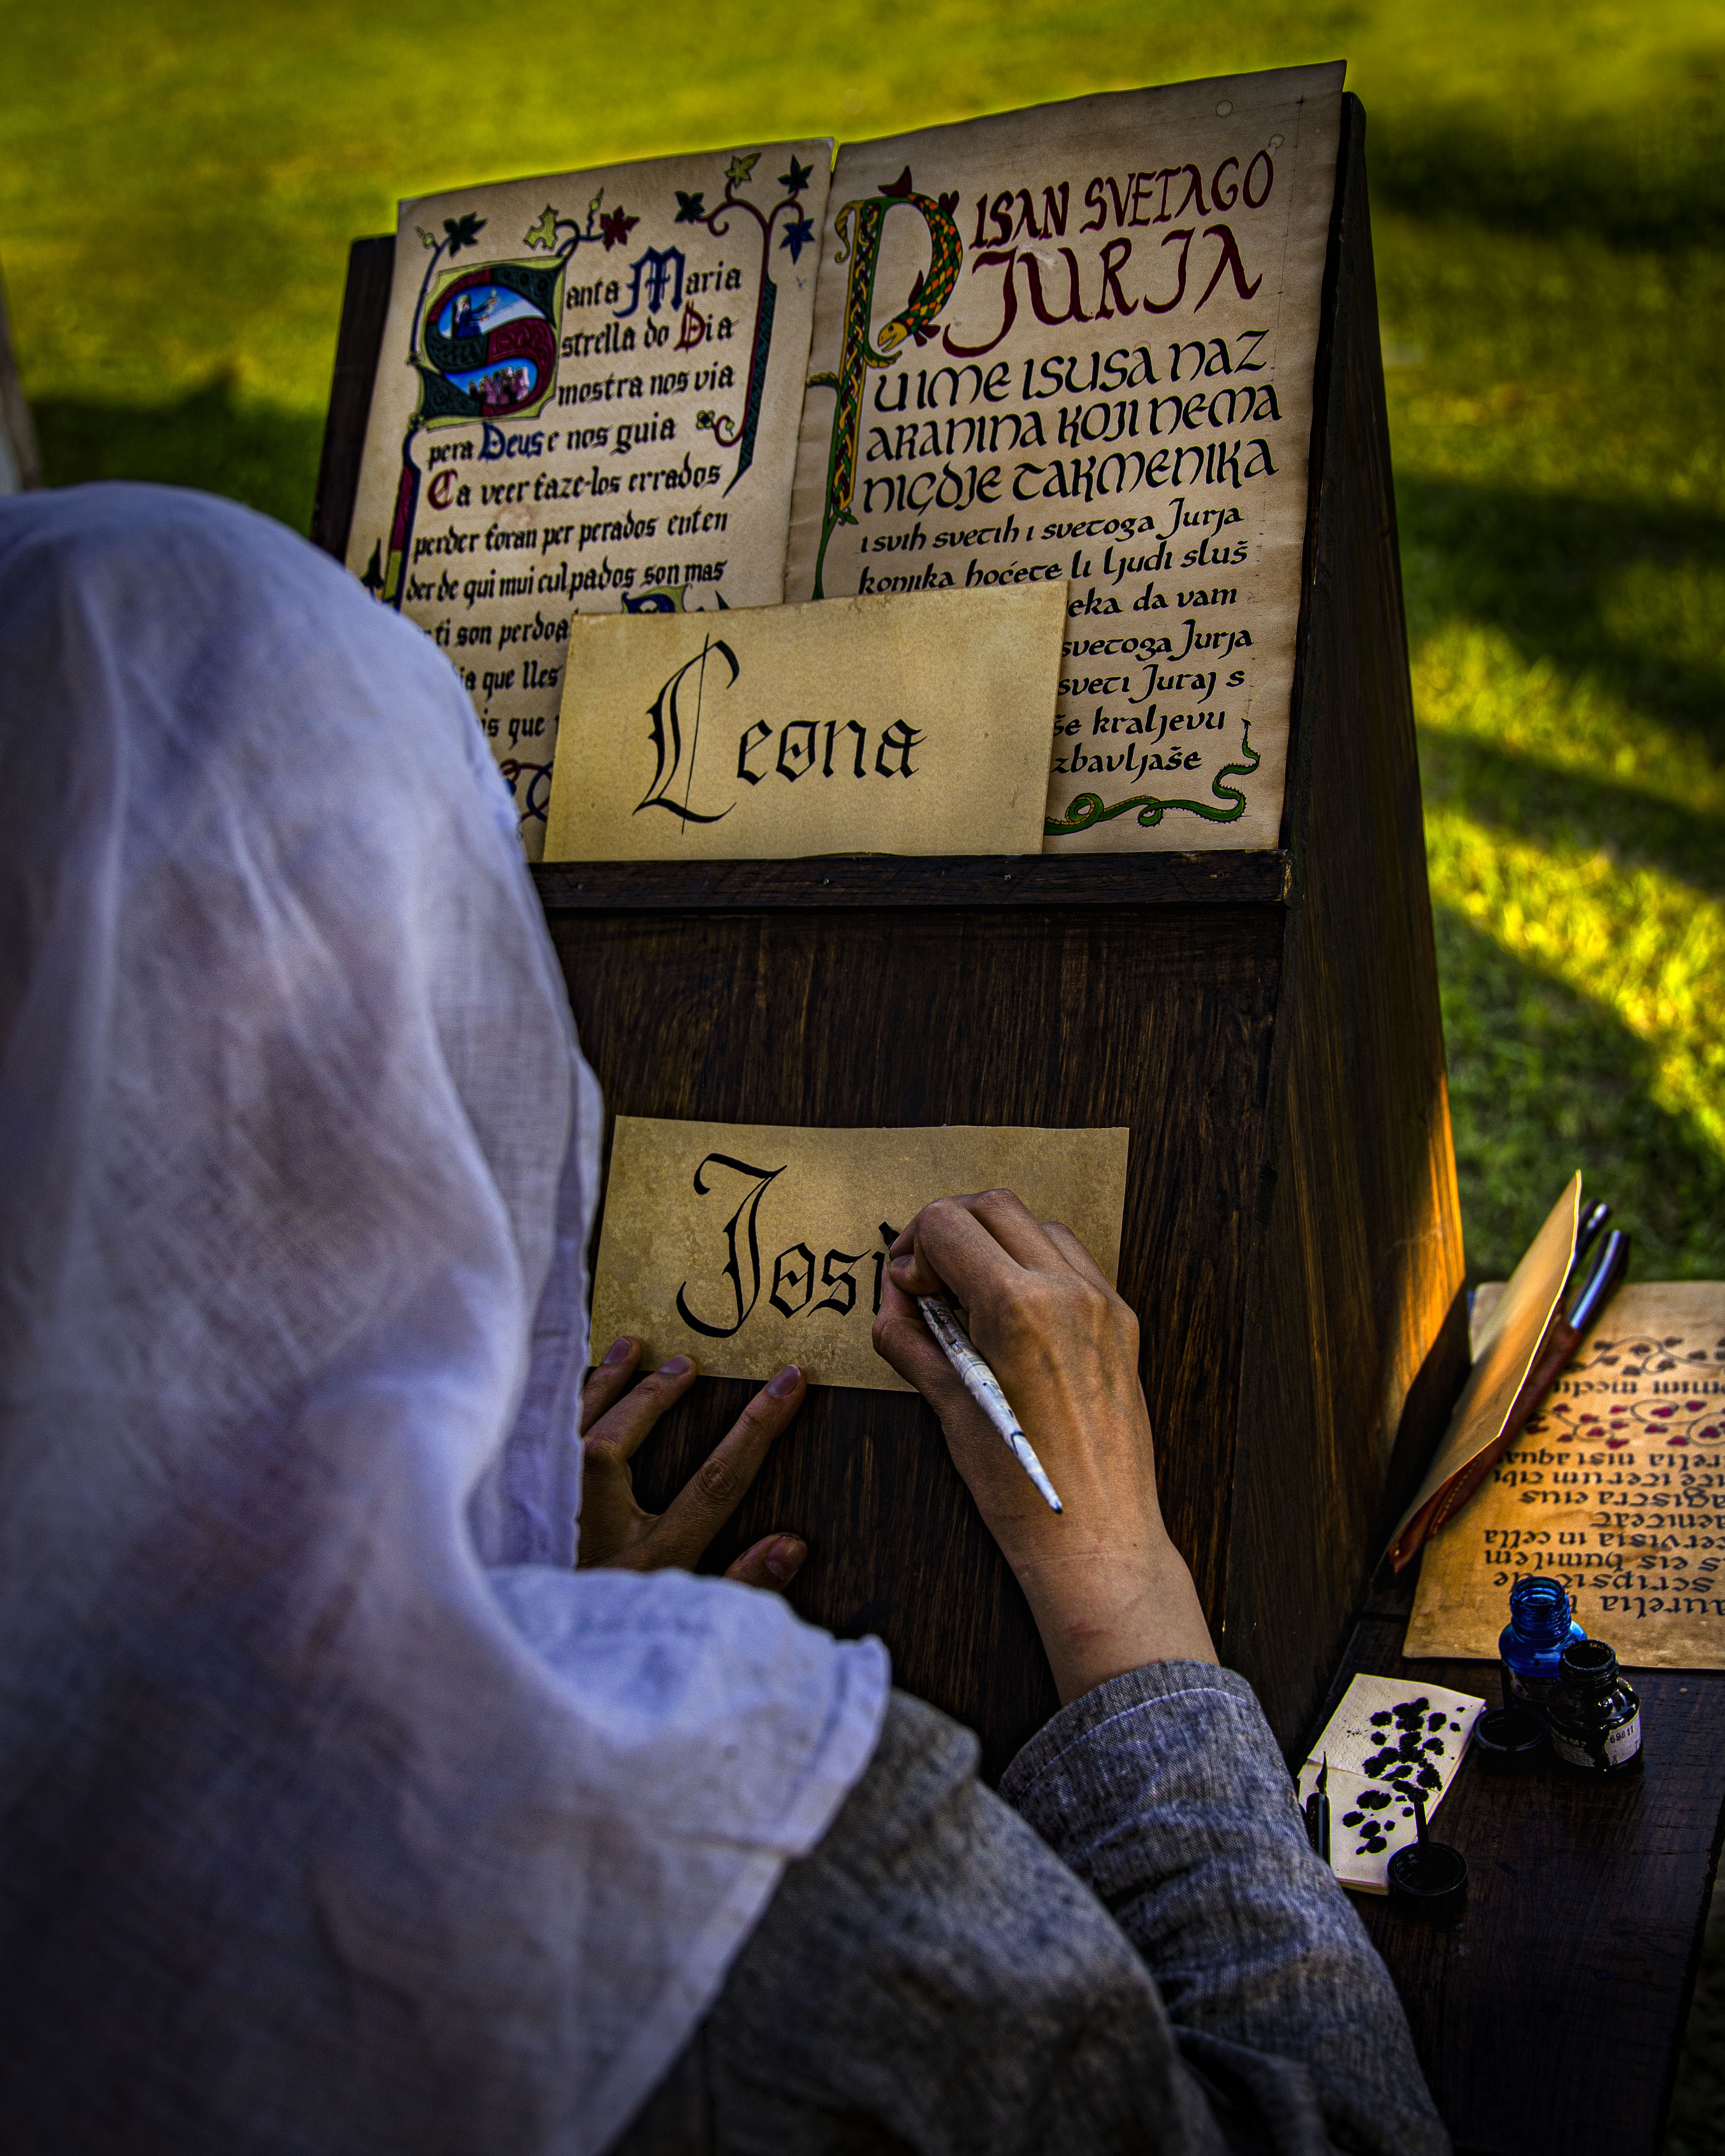 Santa Maria
strella do Dia
mostra nos via
pera Deus e nos guia
Ca veer faze-los errados
perder foran per perados enten
der de qui mui culpados son mas
ti son perdoa
ia que lles
is que
PISAN SVETAGO
JURJA
U IME ISUSA NAZ
ARANINA KOJI NEMA
NIGDJE TAKMENIKA
i svih svetih i svetoga Jurja
konjika hoćete li ljudi sluš
eka da vam
svetoga Jurja
sveti Juraj s
še kraljevu
zbavljaše
Leona
Josi
aurelia
scripsi de
s eis humilem
cervisia in cella
aeniteat
agistra eius
ice iterum cibi
relia nisi aqua
omnim medi
69811